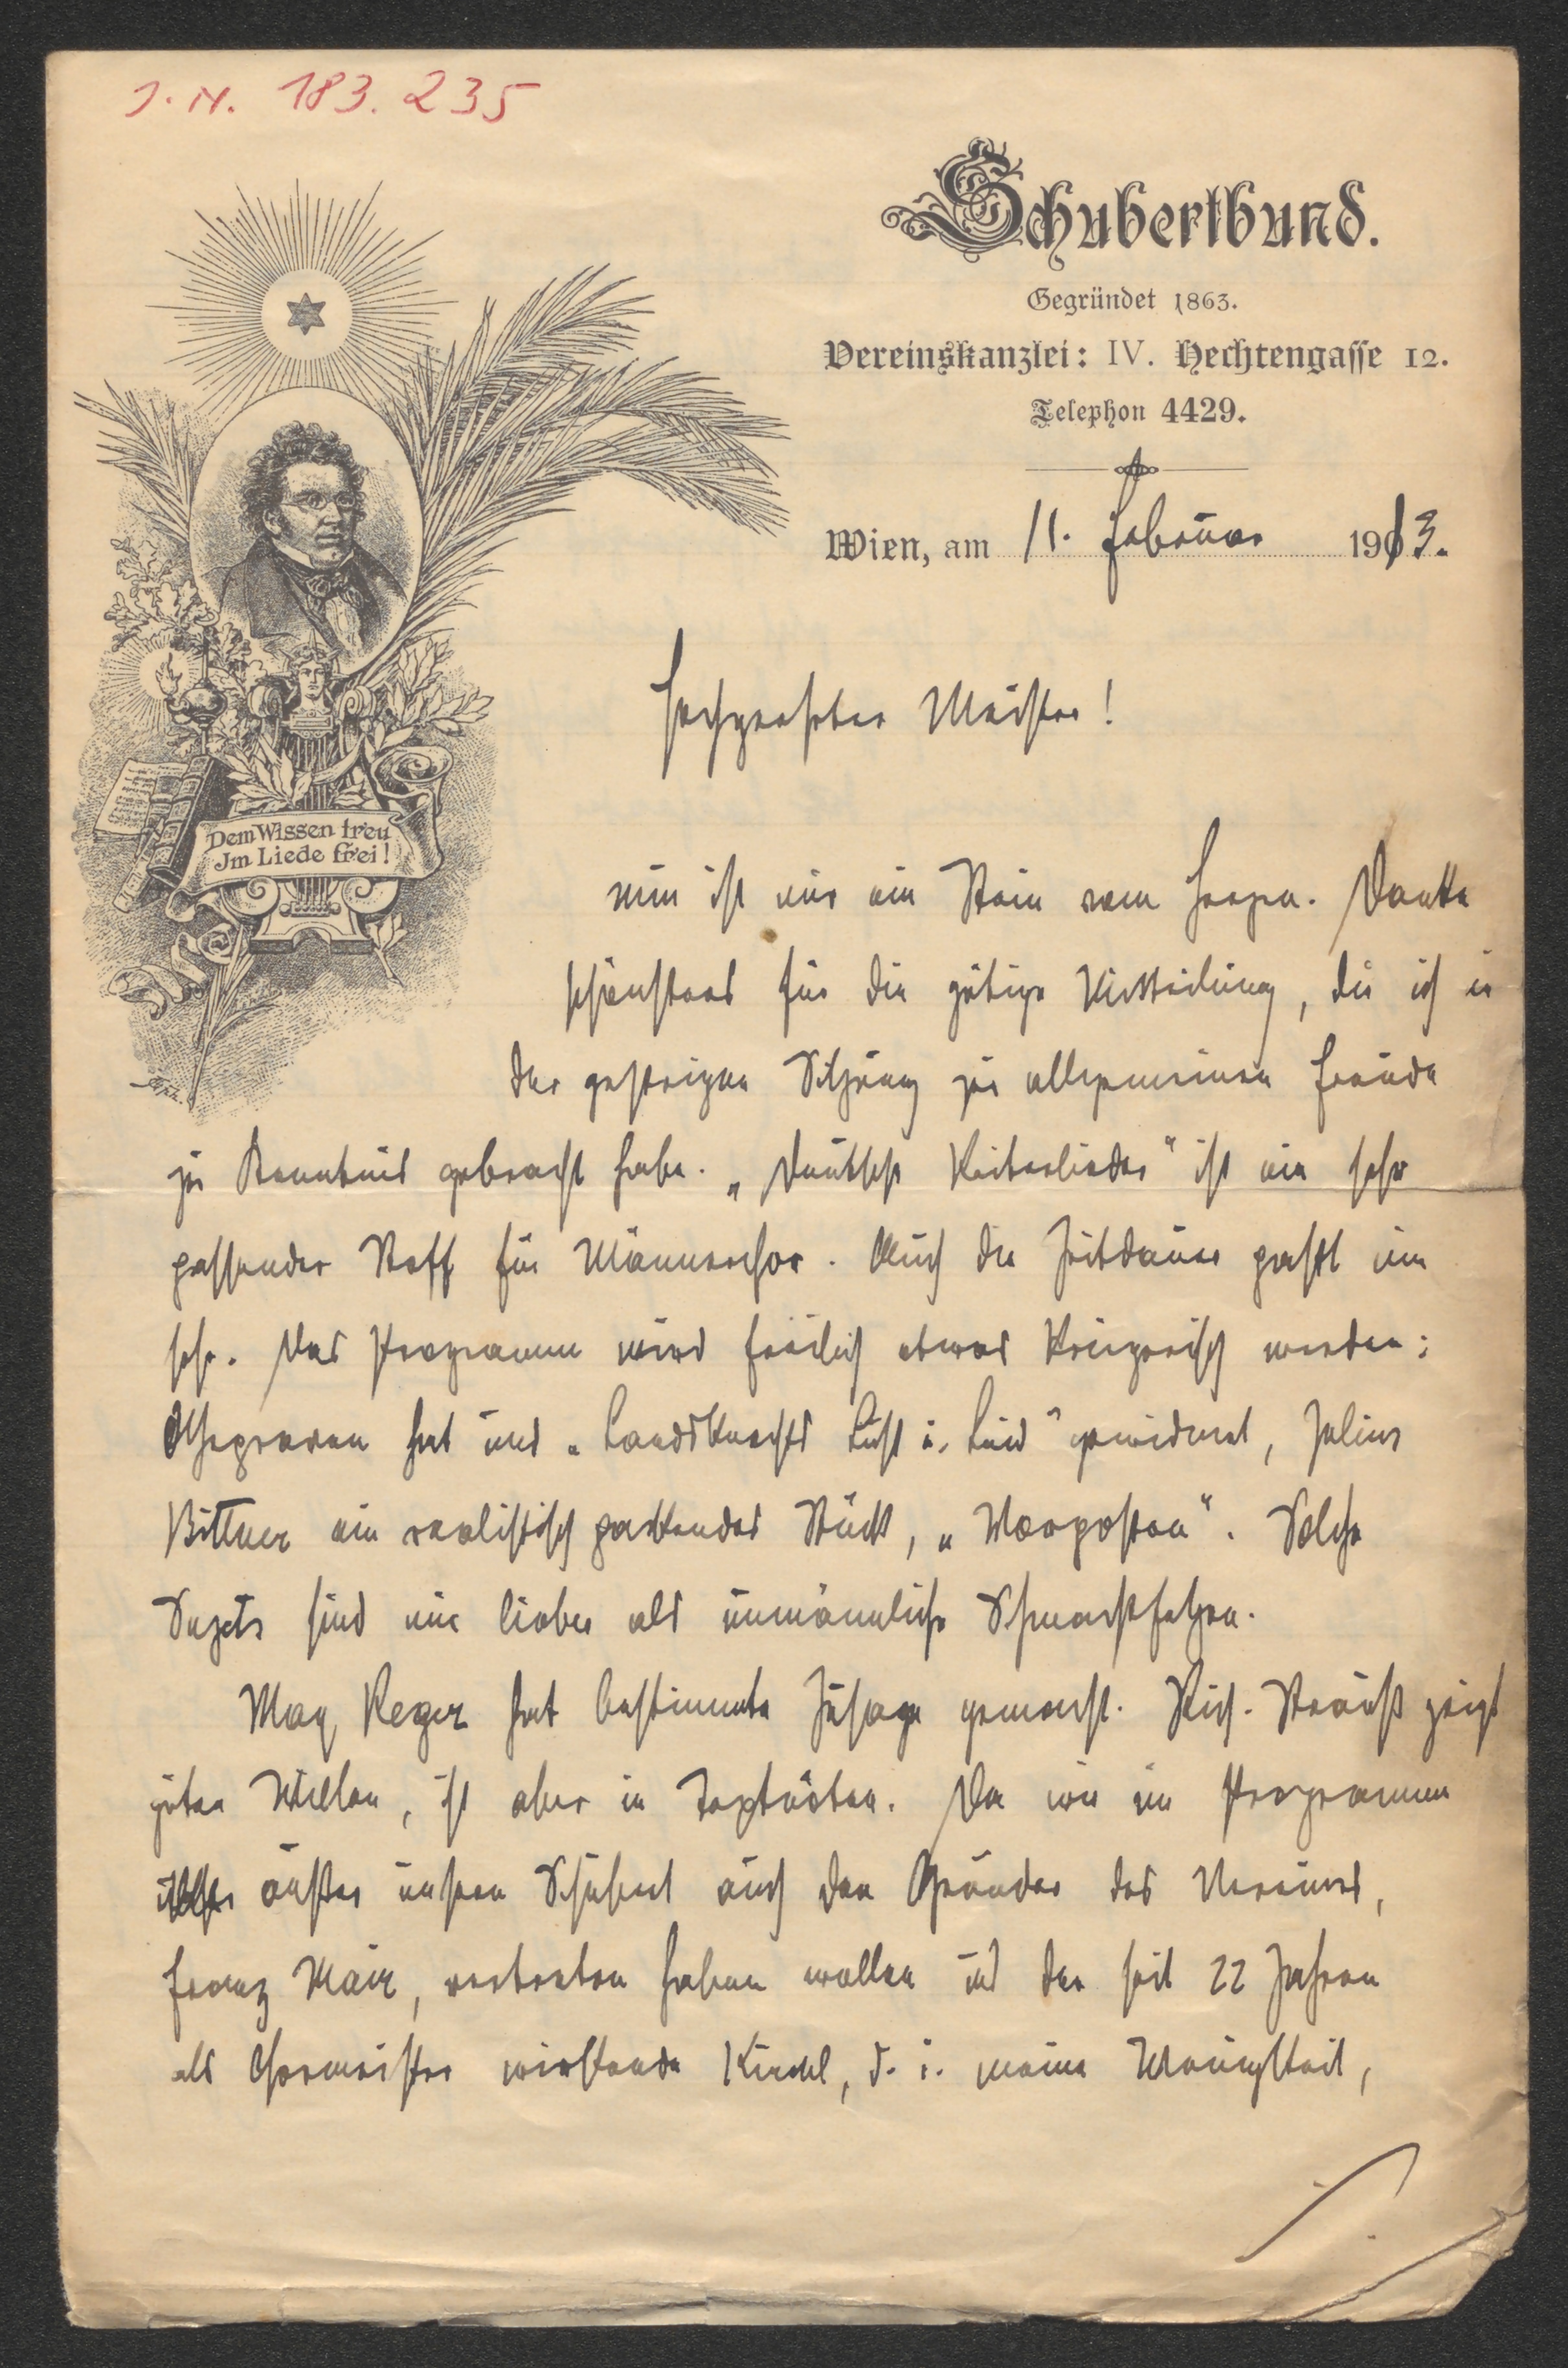 J. N. 183.235
Schubertbund.
Gegründet 1863.
Vereinskanzlei: IV. Hechtengasse 12.
Telephon 4429.
Wien, am 11. Februar 1913.
Dem Wissen treu
Im Liede frei!
Hochgeehrter Meister!
nun ist mir ein Stein vom Herzen. Danke
schönstens für die gütige Mitteilung, die ich in
der gestrigen Sitzung zur allgemeinen Freude
zur Kenntnis gebracht habe. „Deutsche Reiterlieder" ist ein sehr
passender Stoff für Männerchor. Auch die Zeitdauer paßt uns
sehr. Das Programm wird freilich etwas kriegerisch werden:
Othegraven hat uns „Landsknechts Lust u. Leid" gewidmet, Julius
Bittner ein realistisch packendes Stück, „Vorposten". Solche
Sujets sind mir lieber als unmännliche Schmachtfetzen.
Max Reger hat bestimmte Zusage gemacht. Rich. Strauß zeigt
guten Willen, ist aber in Textnöten. Da wir im Programm
außer unsern Schubert auch den Gründer des Vereines,
Franz Mair, vertreten haben wollen und der seit 22 Jahren
als Chormeister wirkende Kirchl, d. i. meine Wenigkeit,